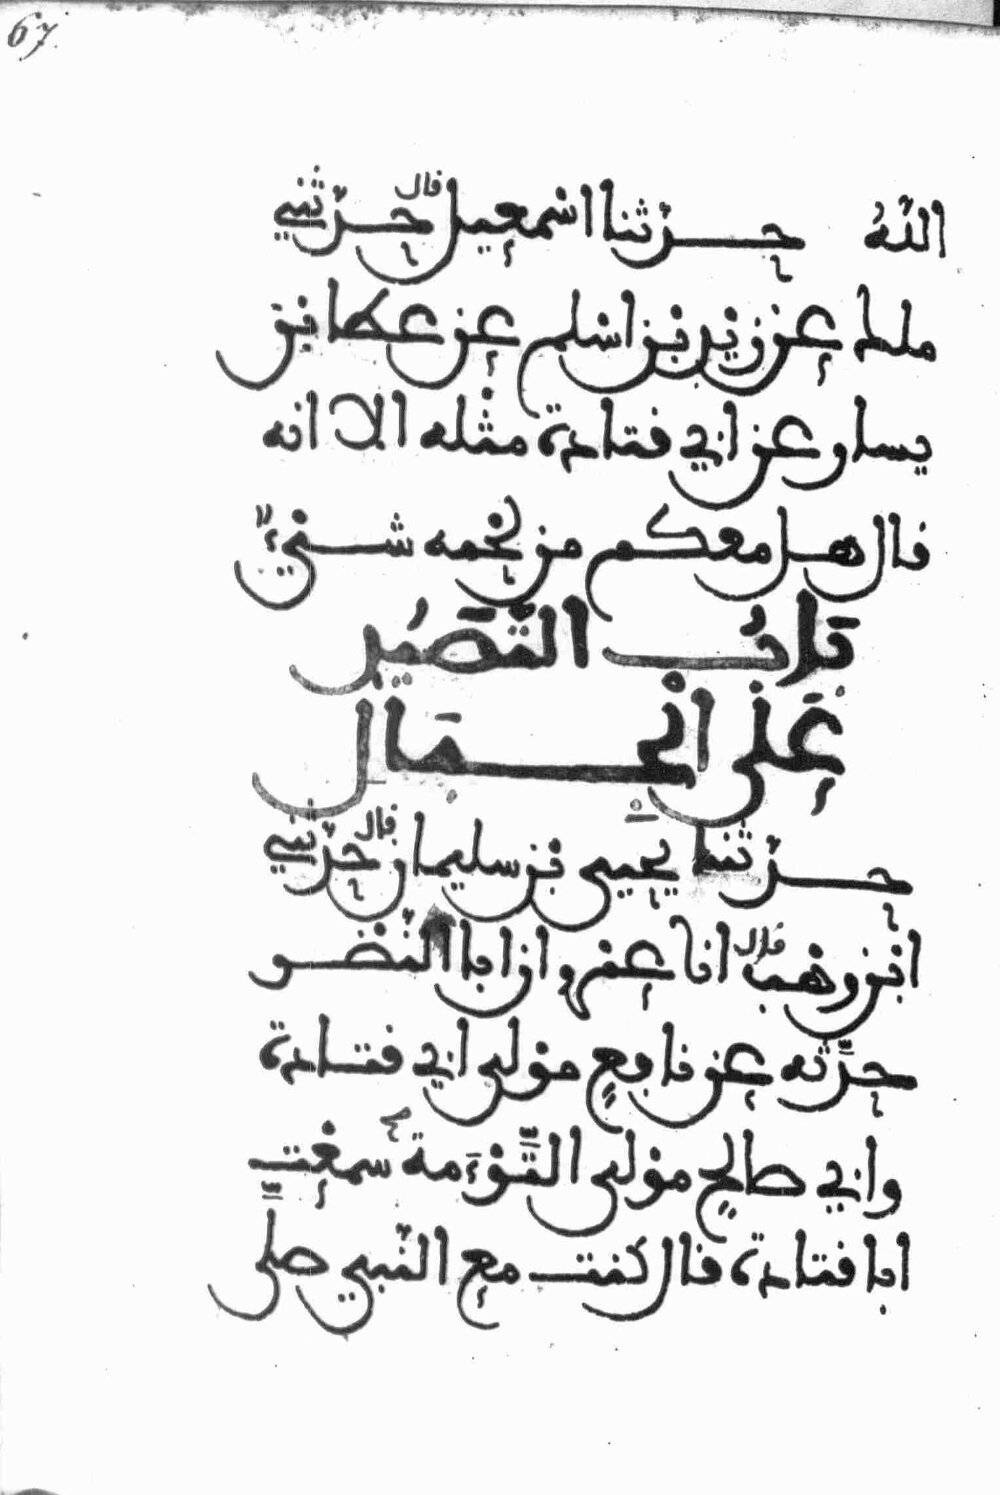 67
الله حدثنا اسمعيل قال حدثني
ملك عن زيد بن اسلم عن عطا بن
يسار عن ابي قتادة مثله الا انه
قال هل معكم من لحمه شيء
باب التصيد
على الجبال
حدثنا يحيى بن سليمان قال حدثني
ابن وهب قال انا عمرو ان ابا النضر
حدثه عن نافع مولى ابي قتادة
وابي صالح مولى التوءمة سمعت
ابا قتادة قال كنت مع النبي صلى